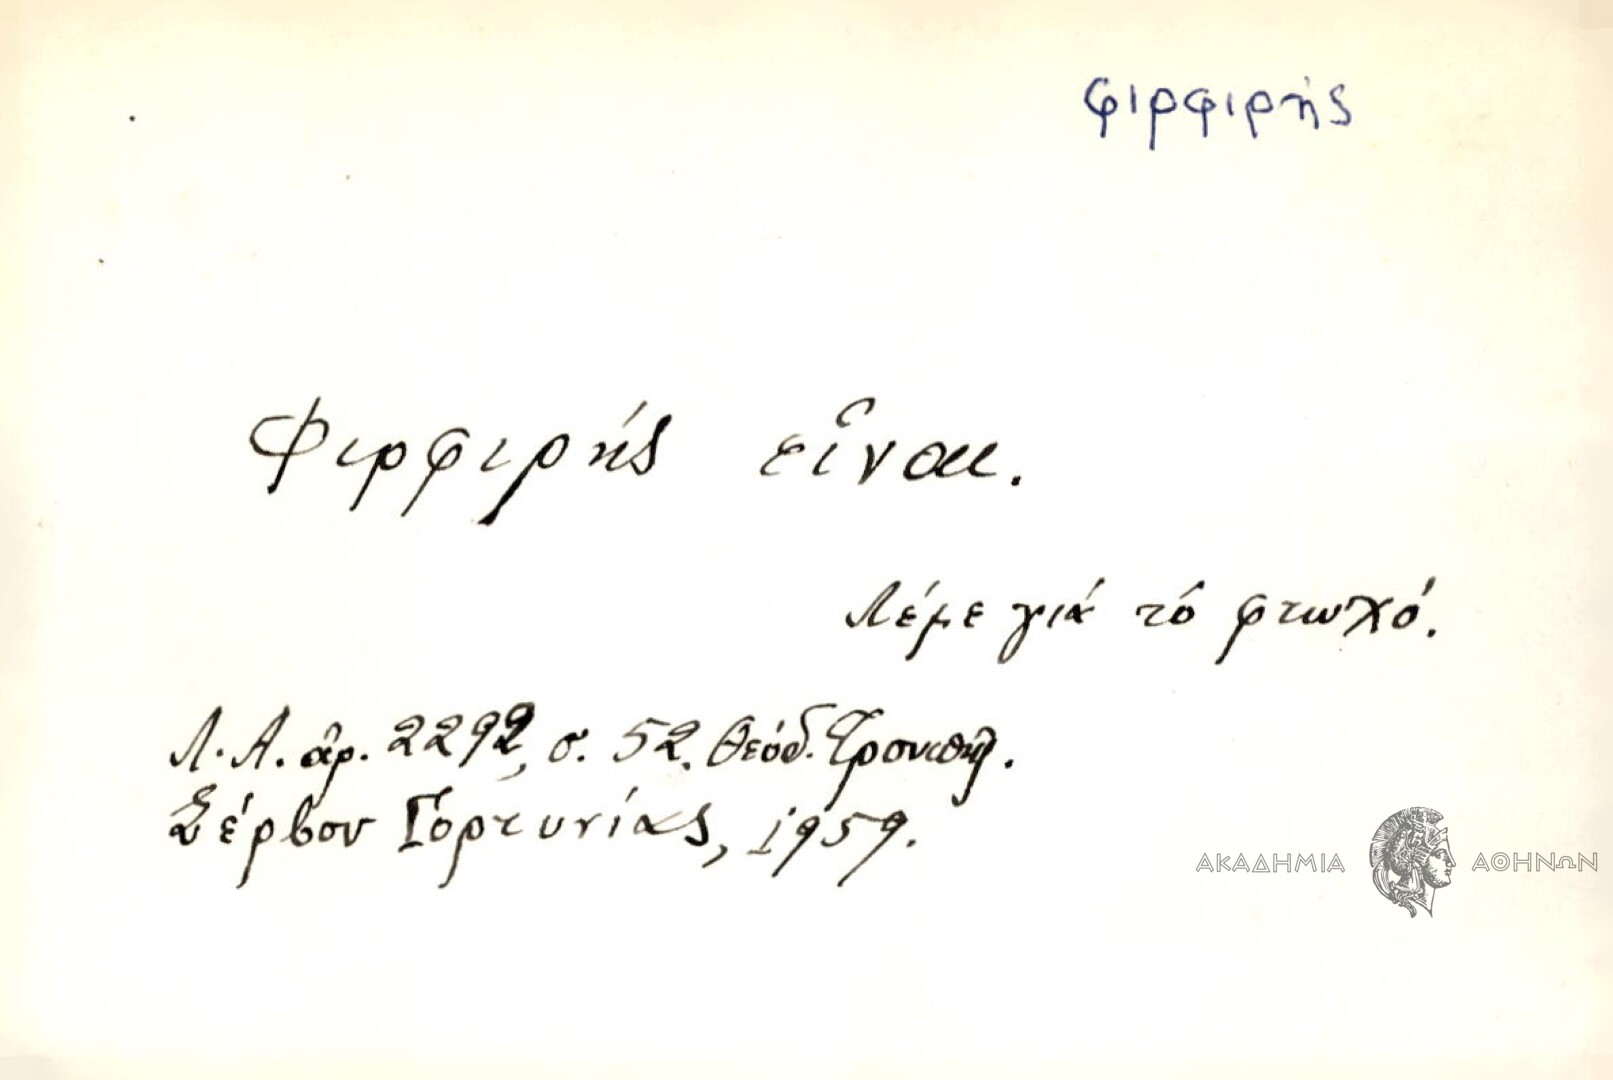 φιρφιρής
Φιρφιρής εἶναι.
Λέμε γιά τό φτωχό.
Λ.Α. ἀρ. 2292, σ. 52. Θεόδ.
Σέρβου Γορτυνίας, 1959.
ΑΚΑΔΗΜΙΑ ΑΘΗΝΩΝ